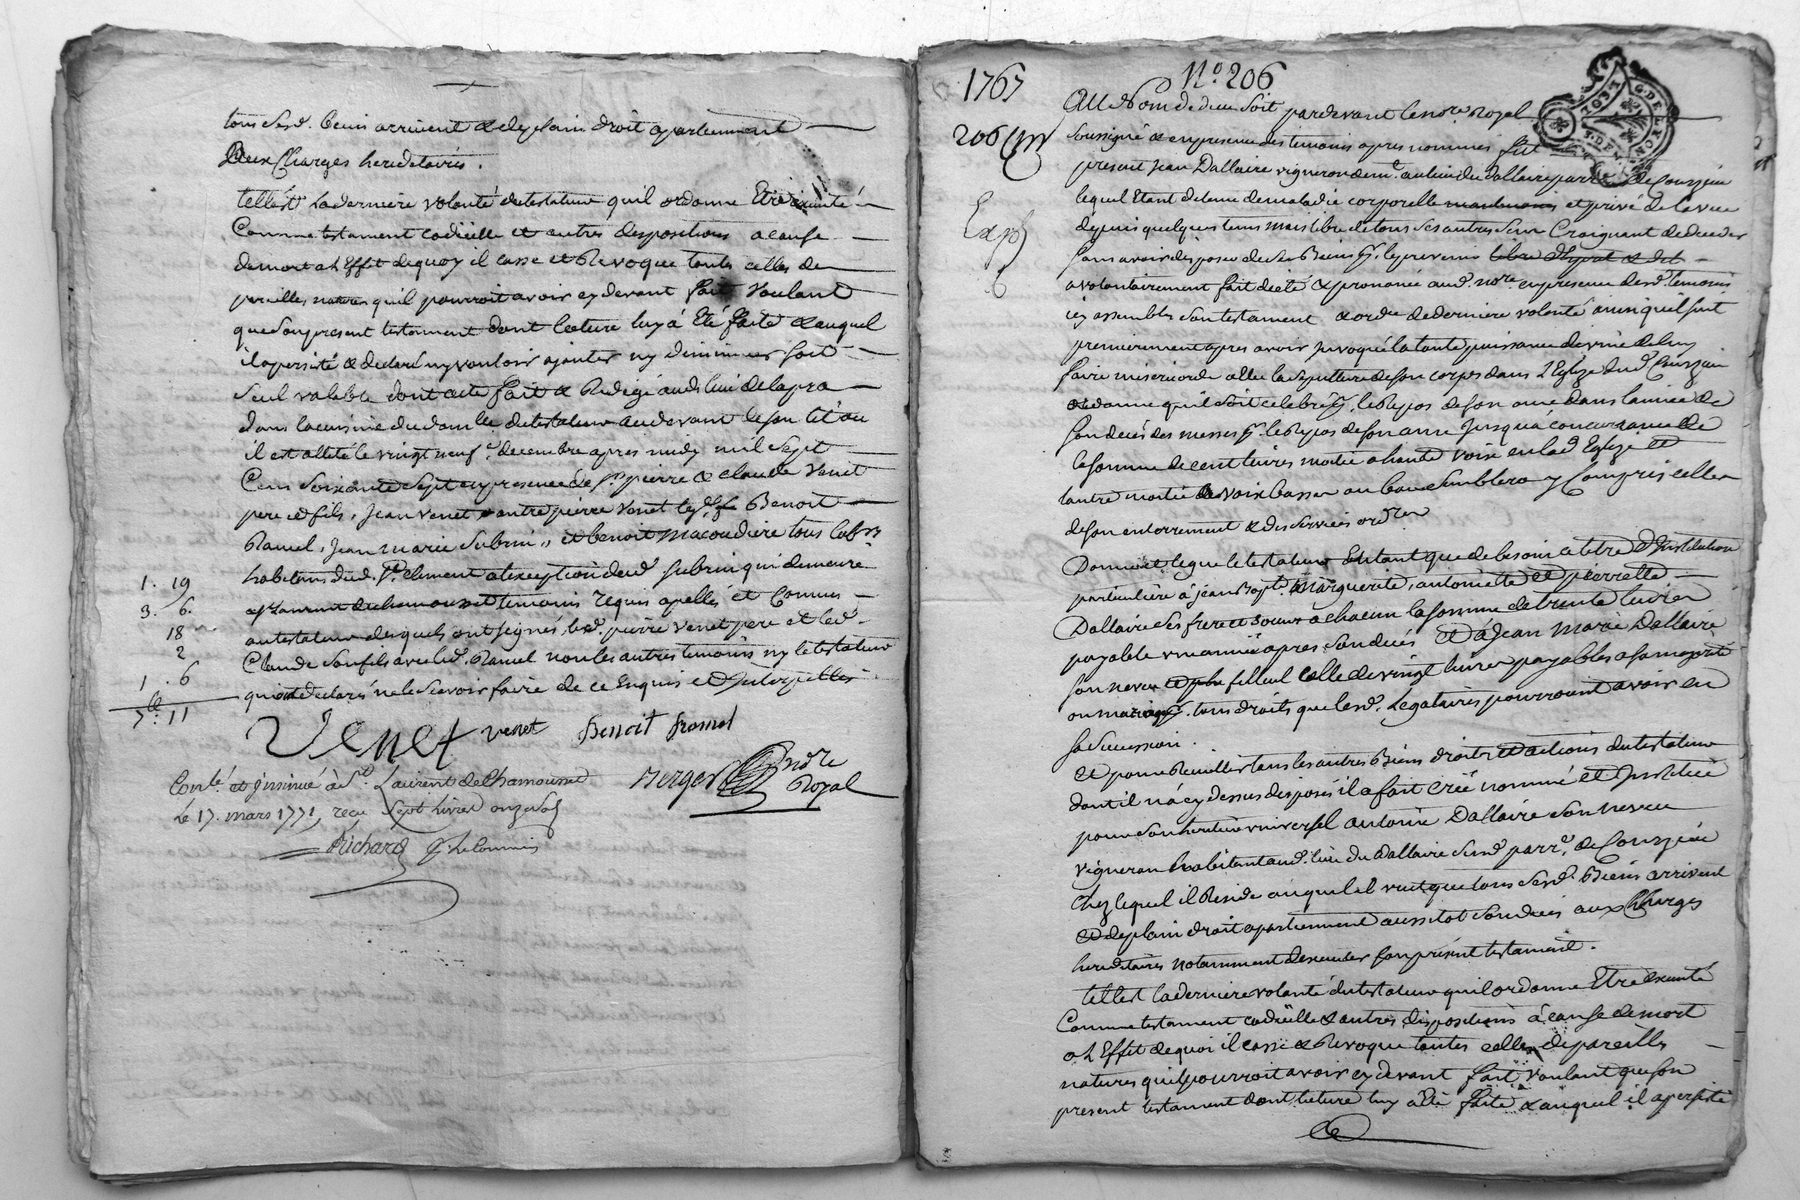 tous sesd. biens arrivent & de plain droit apartiennent
aux charges hereditaires.
telle est sa derniere volonté du testateur quil ordonne Etre exécuté
Comme testament codicille et autres dispositions a cause
de mort a L'Effet de quoy il casse et Revoque toutes celles de
pareilles natures quil pourroit avoir cy devant fait Voulant
que son present testament dont lecture luy á Eté faite & auquel
il a persisté & declaré ny vouloir ajouter ny diminuer soit
seul valable dont acte fait & Redigé aud. lieu de la pra
dans la cuisine du dom.lle du testateur au devant de son lit ou
il est allité le vingt neuf.e decembre apres midy mil sept
Cens soixante sept en presence de Sr. pierre & claude Venet
pere et fils, Jean Venet autre pierre Venet Benoit
Ramel, Jean marie Subrin, et benoit Macoudiere tous
habitans dud. St. Clement a lexception dud. Subrin qui demeure
a St Laurent de chamousset temoins requis apellés et Connus
au testateur desquels ont signés led. pierre Venet pere et led.
Claude son fils avec led. Ramel non les autres temoins ny le testateur
qui ont declarés ne le scavoir faire de ce Enquis et Interpellés
1. 19
3. 6.
18
2
1. 6
7#. 11
Venet venet Benoit Ramel
Berger nore
Royal
Conlé. et insinué à St. Laurent de Chamousset
Le 17. mars 1771, reçu Sept livres onze sols
Richard
1767
No. 206
206
Exp
6
Au Nom de dieu soit pardevant le nore. Royal
soussigné & en presence des temoins apres nommés fut
present Jean Dallaire vigneron dem.t au lieu du Dallaire parr.e de Courzieu
lequel Etant detenu de maladie corporelle et privé de la vue
depuis quelques tems mais libre de tous ses autres sens Craignant de deceder
sans avoir disposé de ses Biens
a volontairement fait dicté & prononcé aud. nore. en presence desd. temoins
icy assemblés son testament & ordre de derniere volonté ainsi quil suit
premierement apres avoir invoqué la toute puissance divine de luy
faire misericorde a Elu la sepulture de son corps dans L'Eglize dud. Courzieu
ordonne quil soit celebré p. le Repos de son ame dans l'année de
son decés des messes p. le Repos de son ame jusqu'á concurrance de
la somme de cent livres moitié a haute voix en lad. Eglize et
lautre moitié a voix basse ou bon semblera y Compris celles
de son enterrement & des services ordres
Donne et legue le testateur Entant que de besoin a titre d'Institution
particuliere à jean bapt. Marguerite, antoinette et pierrette
Dallaire ses frere et soeurs a chacun la somme de trente livres
payable une année apres son decés et á Jean Marie Dallaire
son neveu filleul celle de vingt livres payables a sa majorité
ou mariage p. tous droits que lesd. Legataires pourroient avoir en
sa succession.
Et pour le surplus tous les autres Biens droits et actions du testateur
dont il n'á cy dessus disposé il a fait créé nommé et Institué
pour son heritier universel antoine Dallaire son neveu
vigneron habitant aud. lieu du Dallaire susd. parre. de Courzieu
chez lequel il Reside auquel il veut que tous sesd. Biens arrivent
et de plain droit apartiennent aussitot son decés aux Charges
hereditaires notamment dexecuter son présent testament.
telle est la derniere volonté du testateur quil ordonne Etre executé
Comme testament codicille & autres dispositions á cause de mort
a L'Effet de quoi il casse & Revoque toutes celles de pareilles
natures quil pourroit avoir cy devant fait Voulant que son
present testament dont lecture luy á Eté faite & auquel il a persisté
&